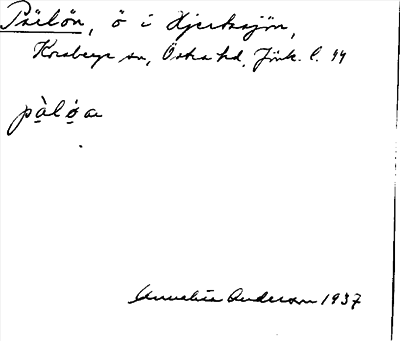 Pälön, ö i Hjertasjön,
Korsberga sn, Östra hd, Jönk. l. 44
pàlǿa
Annelia Anderson 1937